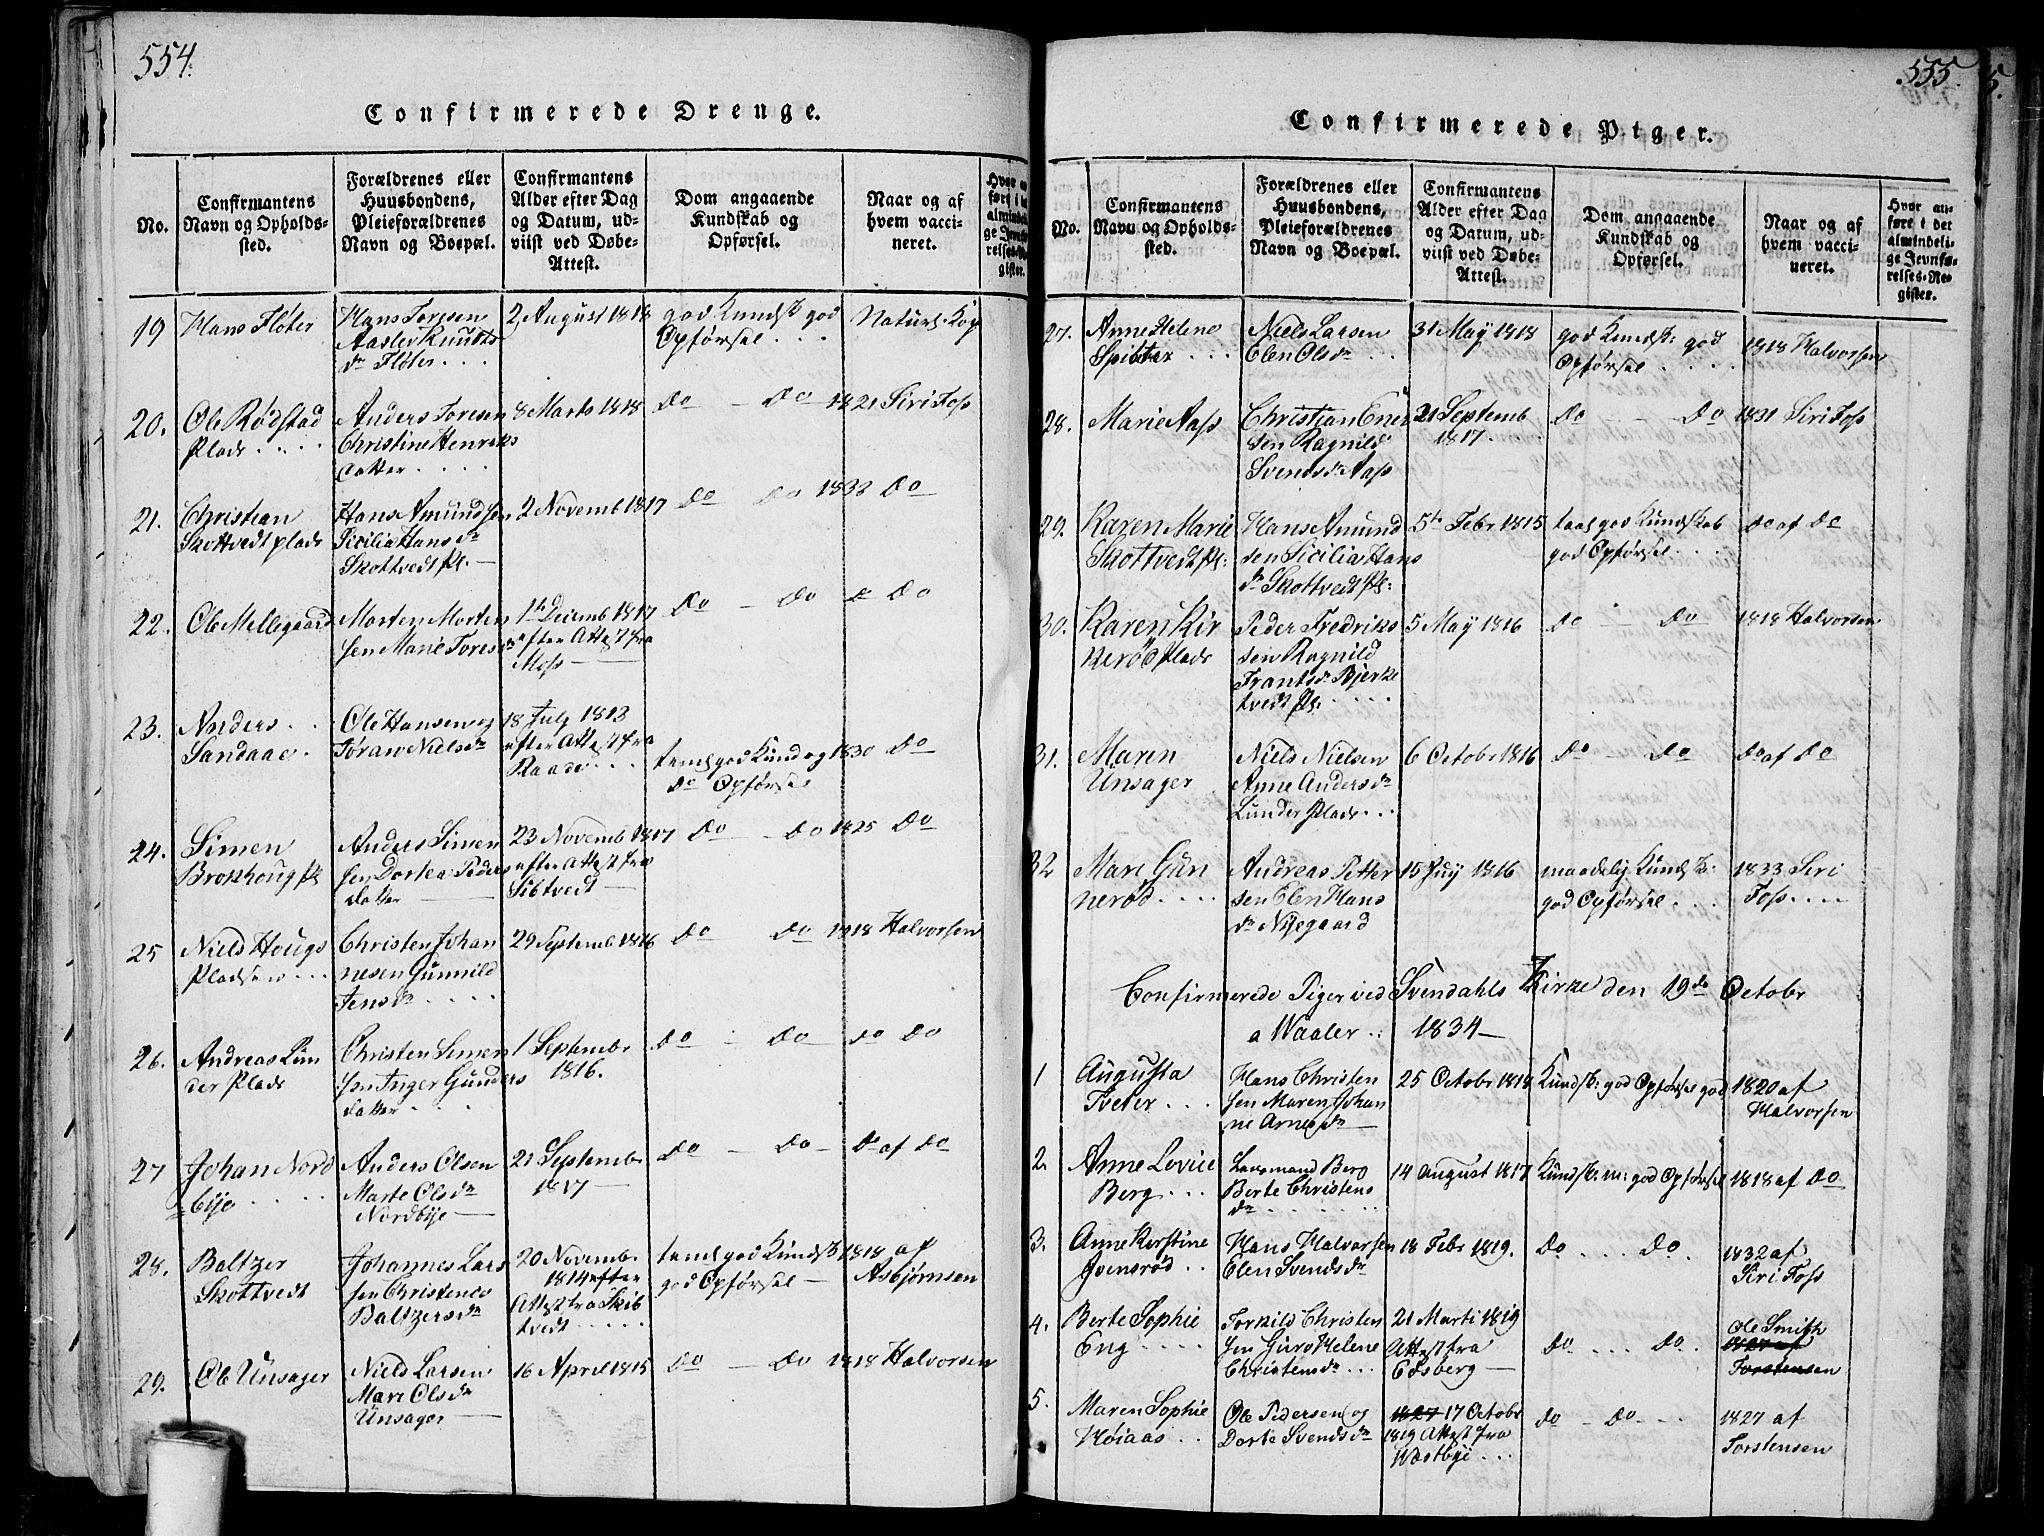 554.
Confirmerede Drenge.
No.
Confirmantens Navn og Opholdssted.
Forældrenes eller Huusbondens, Pleieforældrenes Navn og Boepæl.
Confirmantens Alder efter Dag og Datum, udviist ved Døbe-Attest.
Dom angaaende Kundskab og Opførsel.
Naar og af hvem vaccineret.
19 Hans Fløter
Hans Torgesen
Aaslev Knuts
dr Fløter . . .
2 August 1818
god Kundsk god
Opførsel . . .
Naturl. Kop
20. Ole Rødstad
Plads . . . .
Anders Toresen
Christine Henriks
datter . . . .
8 Marts 1818
do — do
1821 Siri Foss
21. Christian
Skottvedt plads
Hans Amundsen
Sicilia Hans dr
Skottvedt Pl. —
2 Novemb 1817
do do
1833 do
22. Ole Mellegaard
Morten Morten
sen Marie Tores dr
1te Decemb 1817
efter Attest fra
Moss —
do — do
do do
23. Anders . .
Sandaae .
Ole Hansen og
Søraw Niels dr
18 July 1813
efter Attest fra
Raade . . .
teml god Kund og
do Opførsel
1830 do
24. Simen
Brokhoug Pl
Anders Simen
sen Dortea Peders
datter —
23 Novemb 1817
efter Attest fra
Sibtvedt —
do — do
1825 do
25 Niels Hougs
Pladsen . . .
Christen Johan
nesen Gunnild
Jens dr . . . .
29 Septemb 1816
do do
1818 Halvorsen
26. Andreas Lun
der Plads
Christen Simen
sen Inger Gunders
datter . . .
1 Septembr
1816.
do — do
do do
27 Johan Nord
bye . . . .
Anders Olsen
Marte Ols dr
Nordbye —
21 Septembr
1817 —
do — do —
Do af do
28. Baltzer
Skottvedt
Johannes Lars
sen Christence
Baltzers dr
20 Novembr
1814 efter
Attest fra Skib
tvedt . . . . .
teml god Kundsk
god Opførsel —
1818 af
Asbjørnsen
29. Ole Unsager
Niels Larsen
Mari Ols dr
Unsager —
16 April 1815
do — do
1818 Halvorsen
555.
Confirmerede Piger.
No.
Confirmantens Navn og Opholdssted.
Forældrenes eller Huusbondens, Pleieforældrenes Navn og Boepæl.
Confirmantens Alder efter Dag og Datum, udviist ved Døbe-Attest.
Dom angaaende Kundskab og Opførsel.
Naar og af hvem vaccineret.
Hvor anført i det almindelige Jevnførelses-Register.
27. Anne Helene
Spibter . . .
Niels Larsen
Elen Ols dr . . .
31 May 1818
god Kundsk: god
Opførsel . . . .
1818 Halvorsen
28. Marie Aass
Christian Ener
sen Ragnild
Svends dr Aass
21 Septemb
1817. . . .
do — — do
1831 Siri Foss
29. Karen Marie
Skottvedt Pl:
Hans Amund
sen Sicilia Hans
dr Skottvedt Pl:
5te Febr 1815
taal god Kundskab
god Opførsel . . .
do af do
30. Karen Kir
kerød Plads
Peder Fredriks
sen Ragnild
Frants dr Bjerke
tvedt Pl. . . . .
5 May 1816
do — do
1818 Halvorsen
31. Maren
Unsager
Niels Nielsen
Anne Anders dr
Lunder Plads . . .
6 Octobr 1816
do — do
do af do
32 Mari Gun
nerød . . . .
Andreas Petter
sen Elen Hans
dr Nyegaard
15 July 1816
maadelig Kundsk:
god Opførsel . . .
1833 Siri
Foss . . . .
Confirmerede Piger ved Svendahls Kirke den 19de Octobr
a Waaler . . 1834 —
1 Augusta
Tveter . . .
Hans Christen
sen Maren Johan
ne Arnes dr —
25 Octobr 1818
Kundsk: god Opførsel god
1820 af
Halvorsen
2. Anne Lovise
Berg . . .
Lensmand Berg
Berte Christens
dr . . . . . .
14 August 1817
Kundsk: m: god Opførsel
1818 af do
3. Anne Kerstine
Svensrød . .
Hans Halvorsen
Elen Svends dr
18 Febr 1819.
do . . . do .
1832 af
Siri Foss
4. Berte Sophie
Eng . . . .
Torkild Christen
sen Guro Helene
Christens dr . . .
21 Marti 1819
Attest fra
Edsberg —
do . . . do .
Ole Smith
1827 af
Torstensen
5. Maren Sophie
Høiaas . .
Ole Pedersen og
Dorte Svends dr
1827 17 Octobr
1819 Attest fra
Westbye . . .
do — do — . .
1827 af
Torstensen